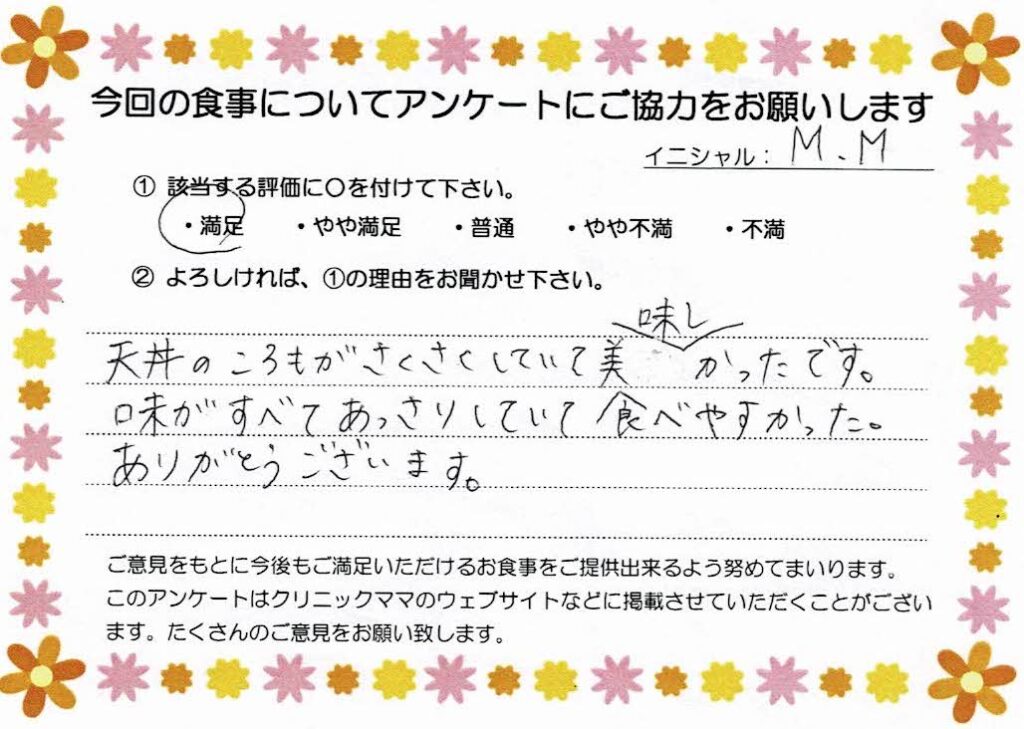 今回の食事についてアンケートにご協力をお願いします
イニシャル： M.M
① 該当する評価に○を付けて下さい。
・満足 ・やや満足 ・普通 ・やや不満 ・不満
② よろしければ、①の理由をお聞かせ下さい。
味し
天丼のころもがさくさくしていて美 かったです。
味がすべてあっさりしていて食べやすかった。
ありがとうございます。
ご意見をもとに今後もご満足いただけるお食事をご提供出来るよう努めてまいります。
このアンケートはクリニックママのウェブサイトなどに掲載させていただくことがござい
ます。たくさんのご意見をお願い致します。